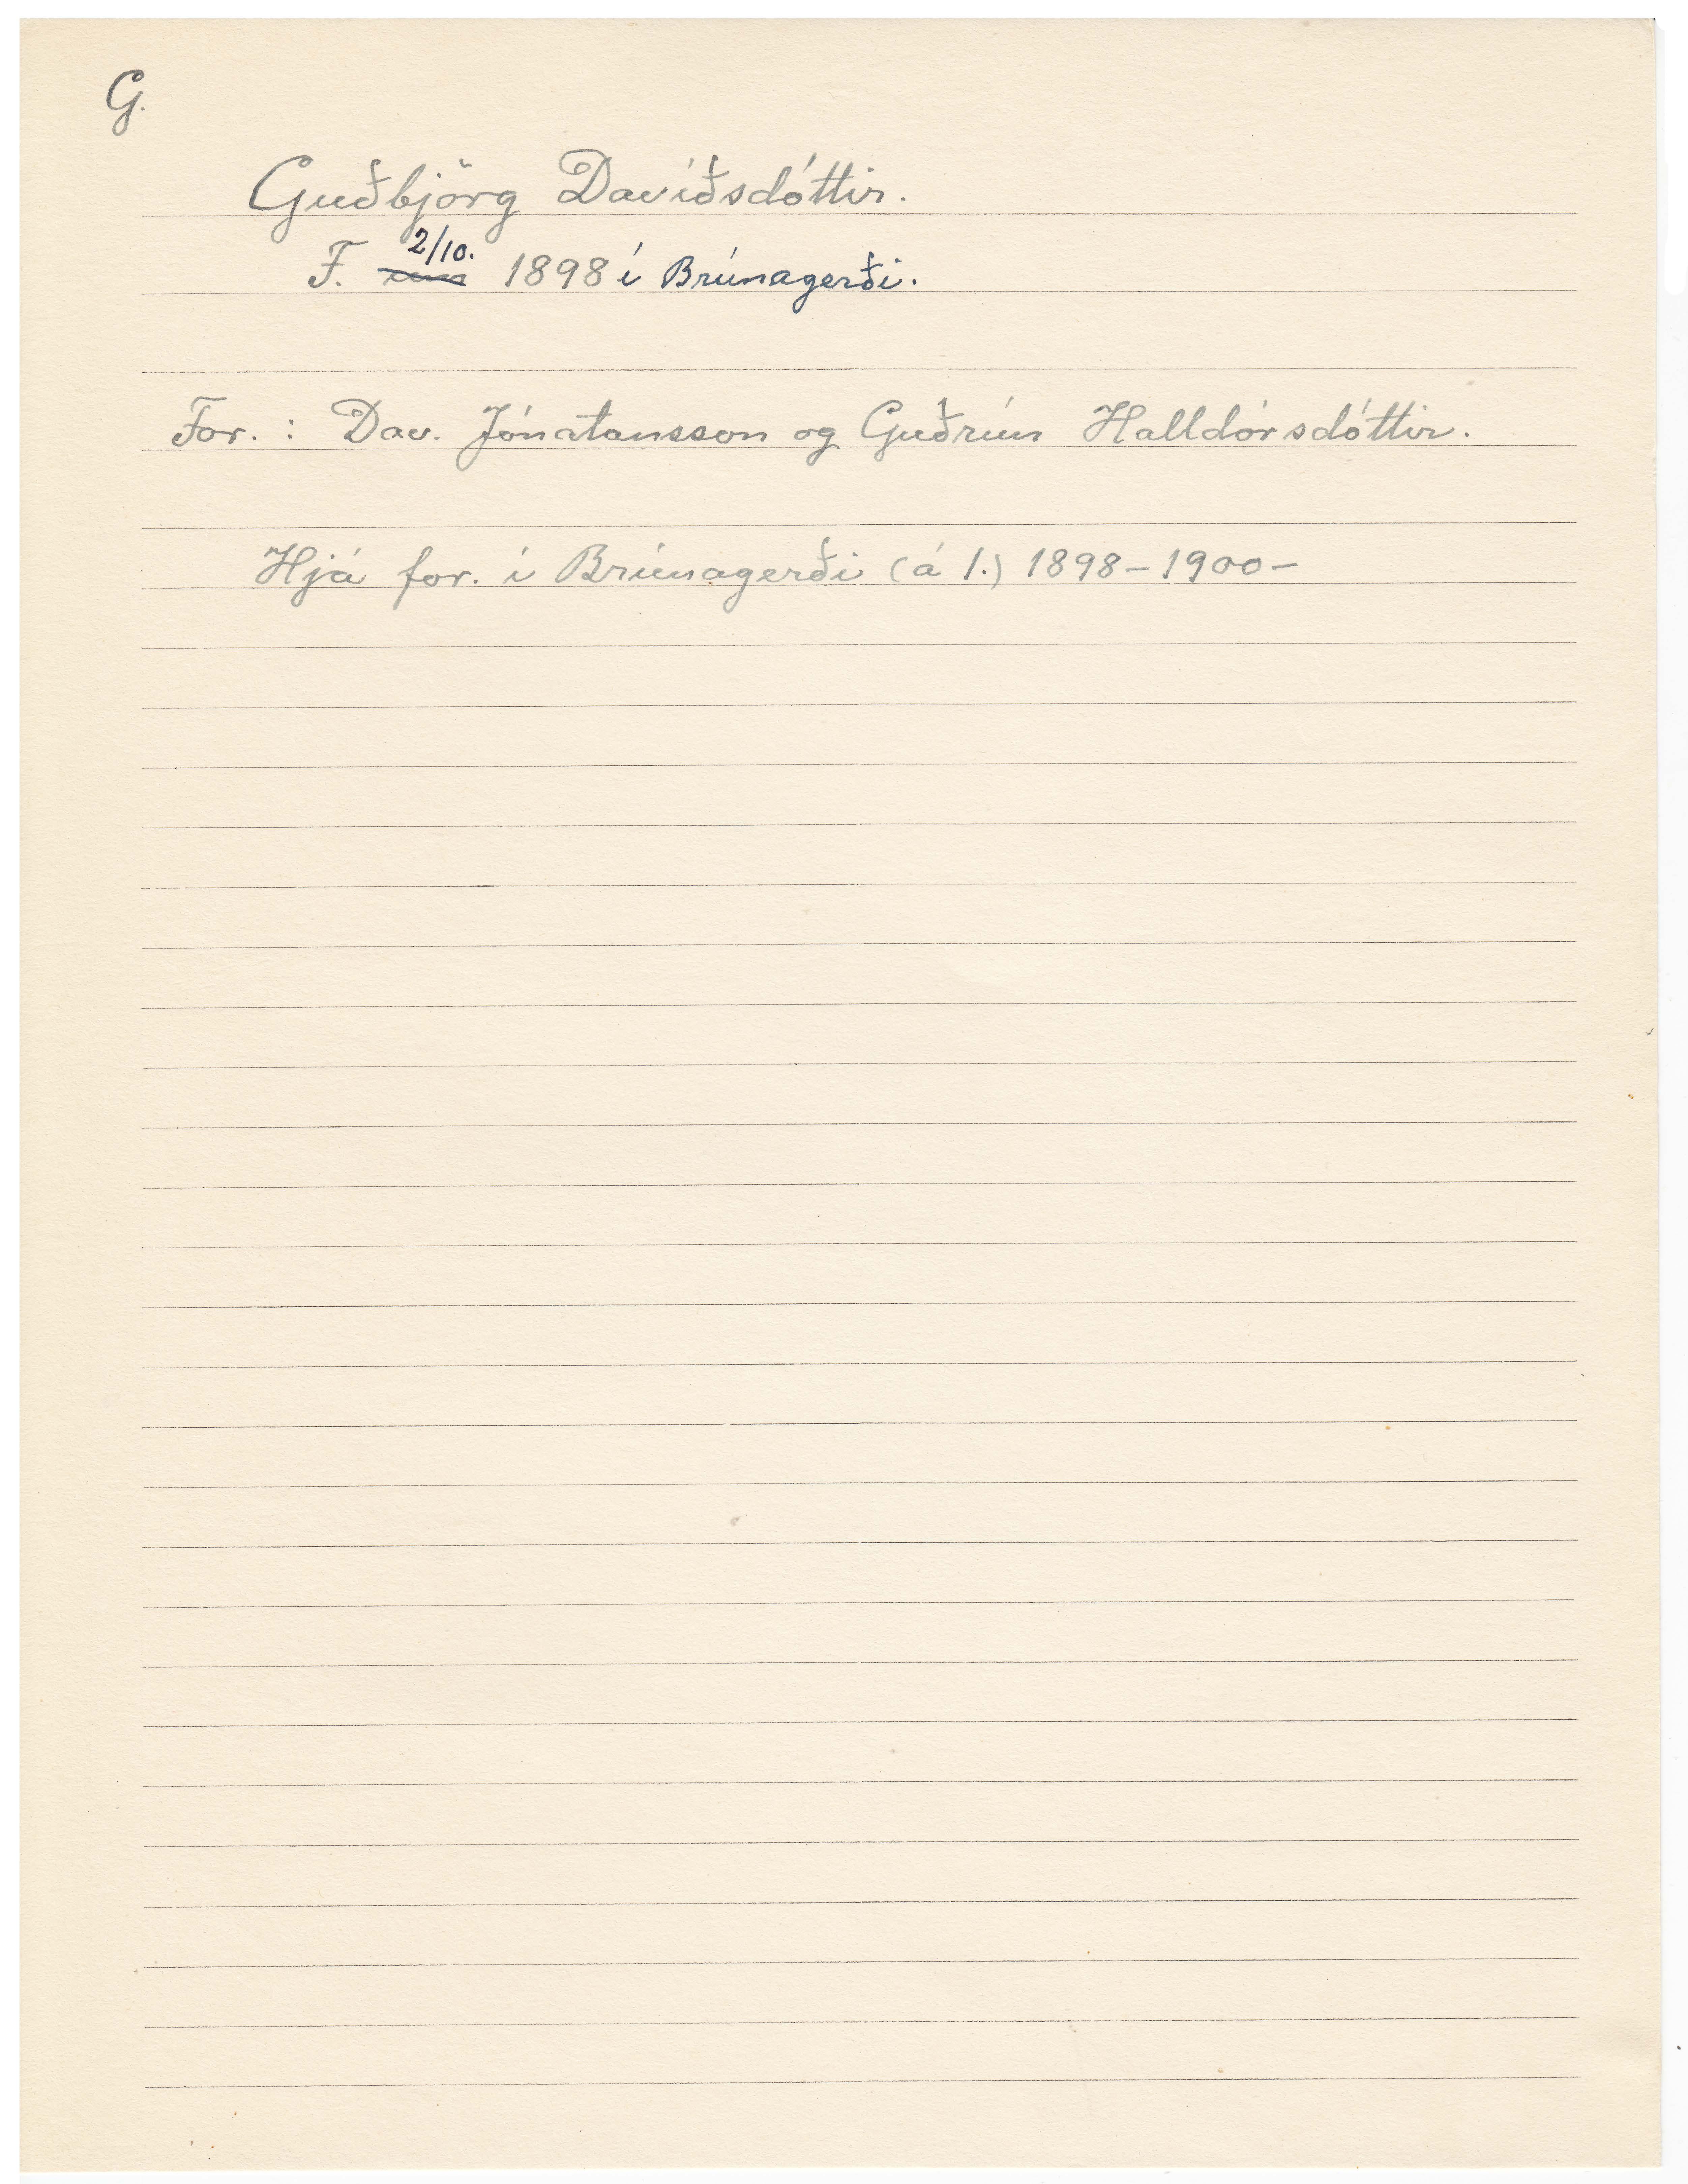 G.
Guðbjörg Davíðsdóttir.
F. 2/10. 1898 í Brúnagerði.
For. : Dav. Jónatansson og Guðrún Halldórsdóttir.
Hjá for. í Brúnagerði (á 1.) 1898-1900-